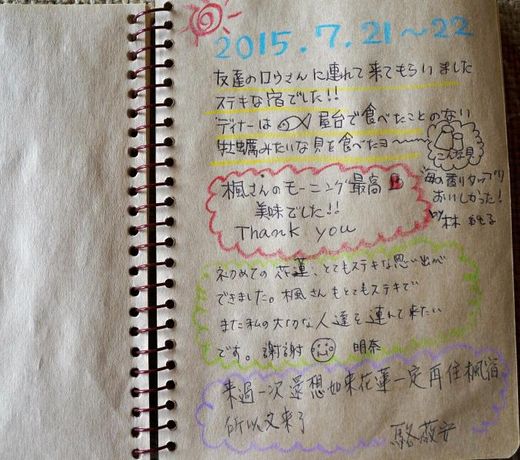 2015.7.21~22
友達のロウさんに連れて来てもらいました
ステキな宿でした!!
ディナーは 屋台で食べたことのない
牡蠣みたいな貝を食べたヨ〜
こんな貝
海の香りタップリ
おいしかった!
by 林
楓さんのモーニング最高
美味でした!!
Thank you
初めての花蓮、とてもステキな思い出が
できました。楓さんもとてもステキで
また私の大切な人達を連れて来たい
です。謝謝 明奈
来過一次還想如来花蓮一定再住楓宿
所以又来了
駱薇